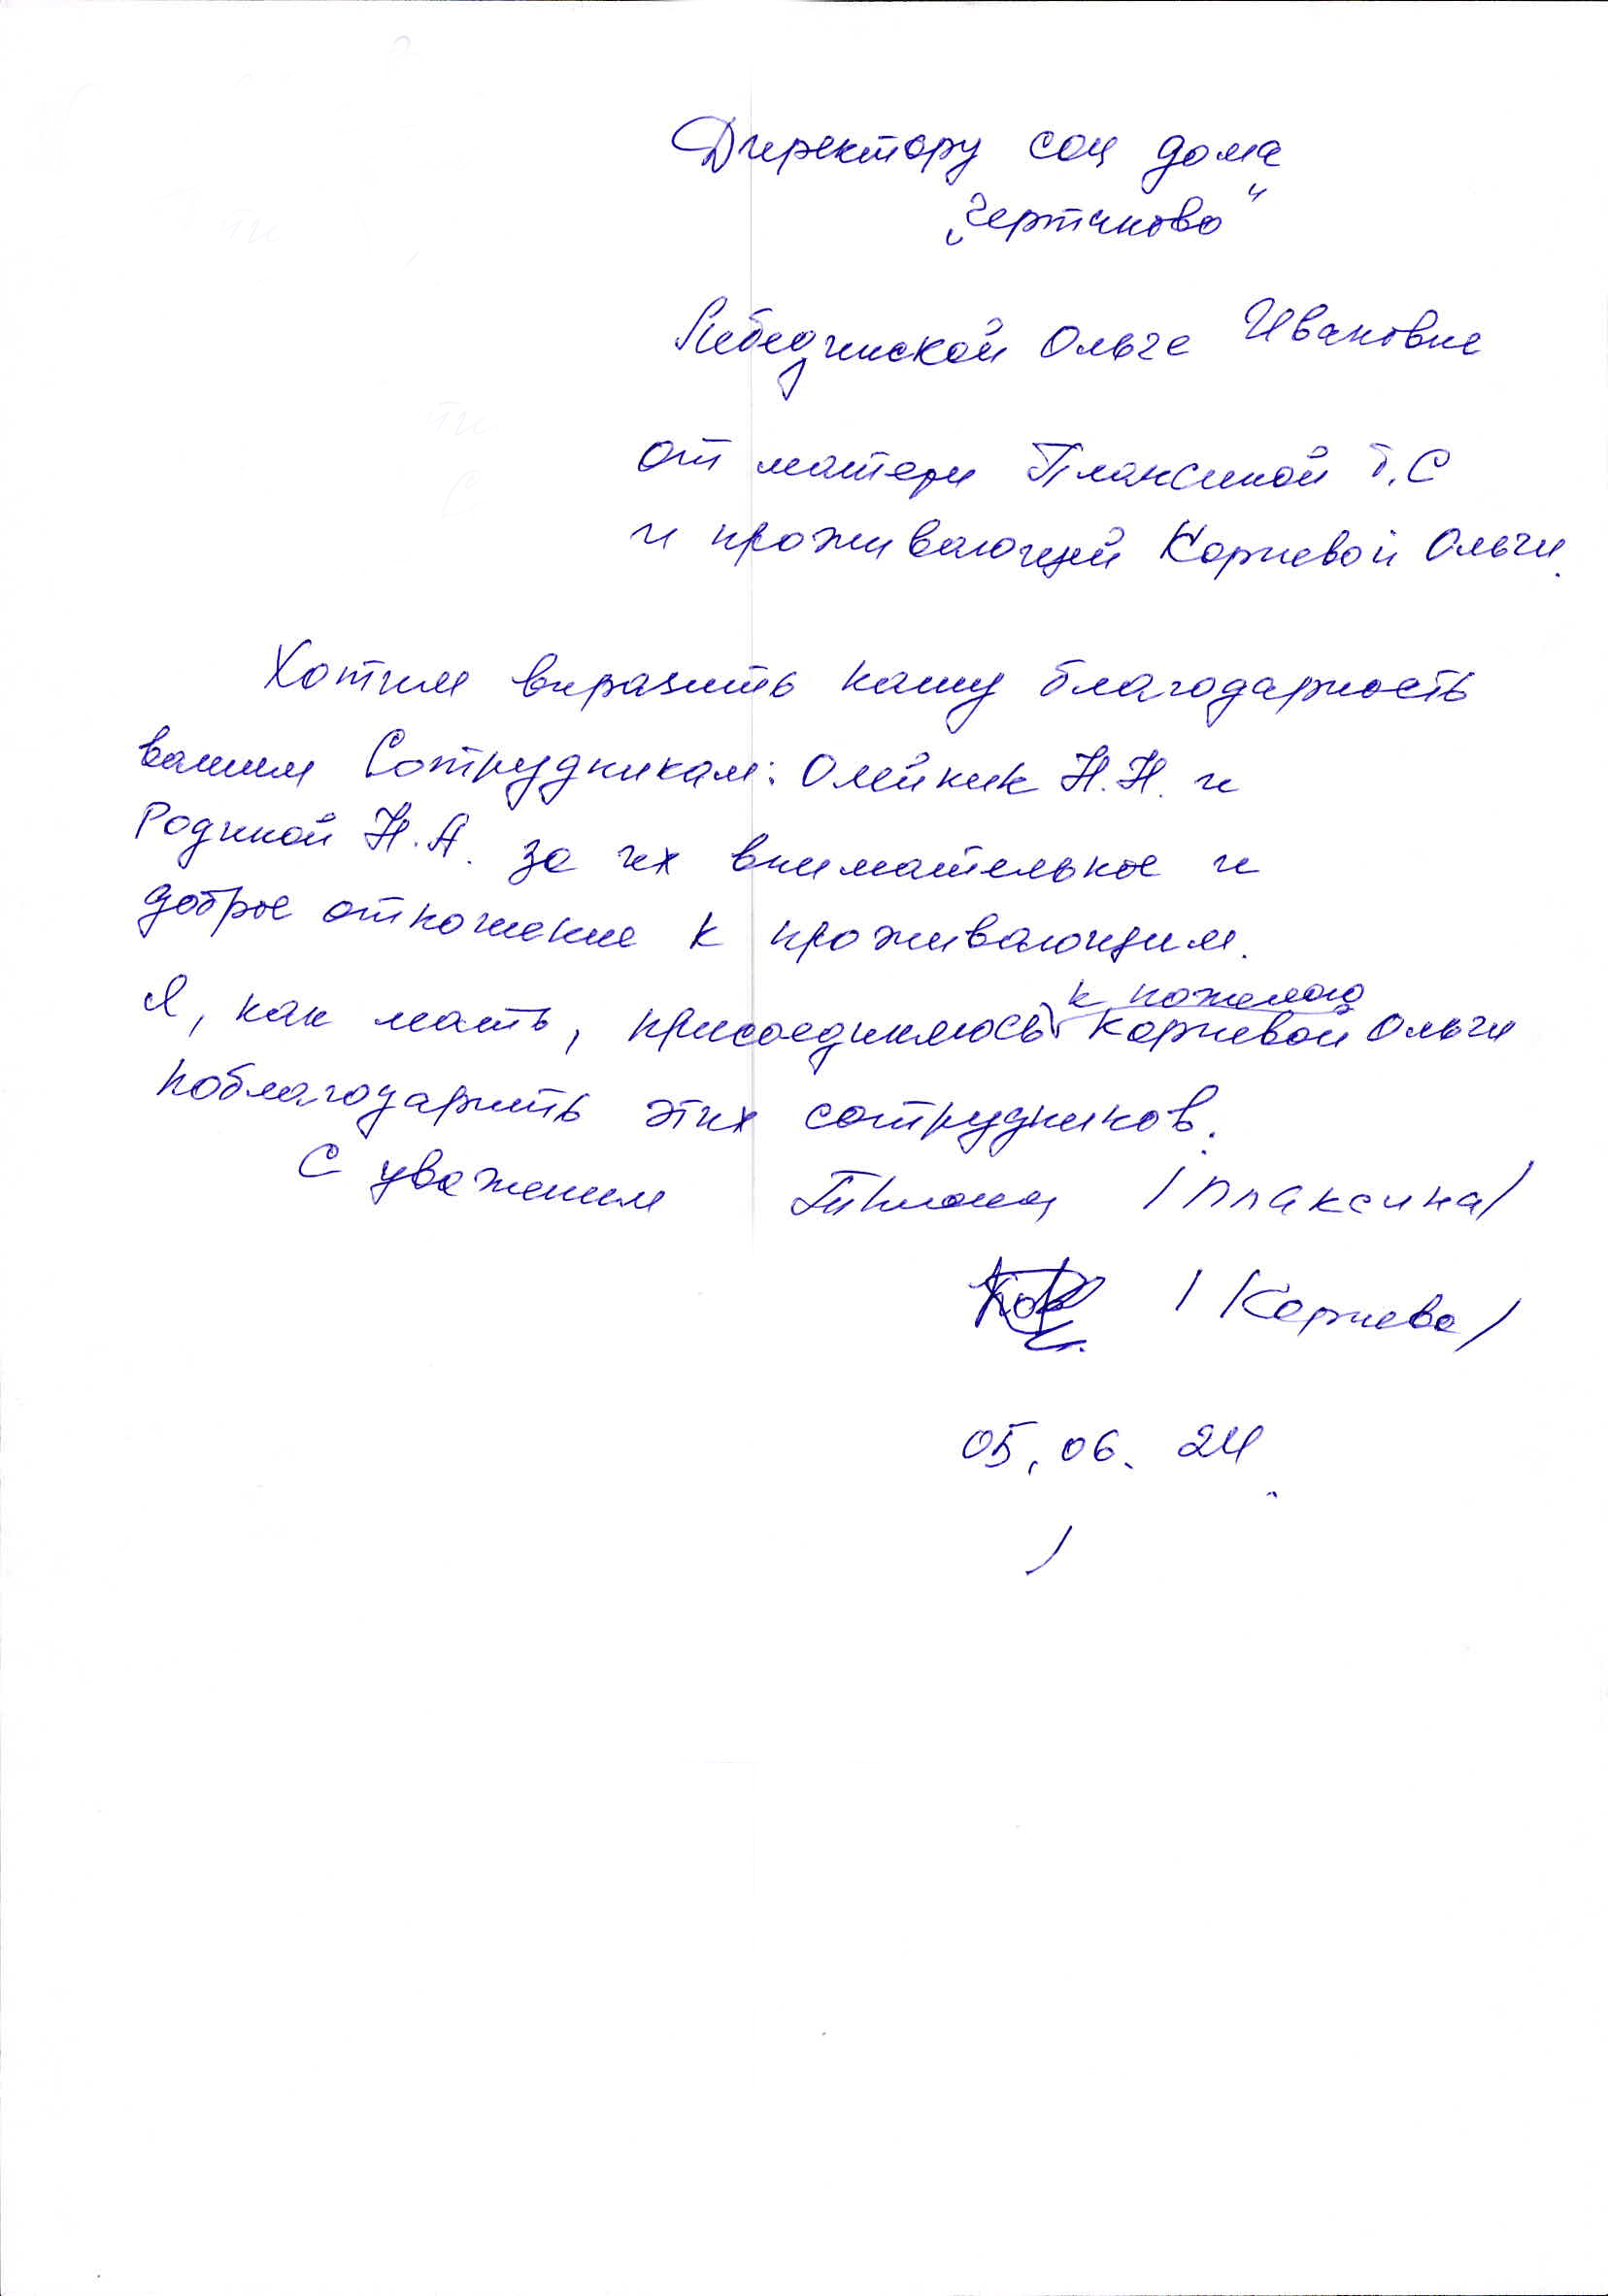 Директору соц дома
"Чертаново"
Лебединской Ольге Ивановне
от матери Плаксиной Т.С
и проживающей Корневой Ольги.
Хотим выразить нашу благодарность
вашим Сотрудникам: Олейник Н.Н. и
Родиной Н.А. за их внимательное и
доброе отношение к проживающим.
к
Я, как мать, присоединяюсь Корневой Ольги
поблагодарить этих сотрудников.
С уважением /Плаксина/
/Корнева/
05.06.24